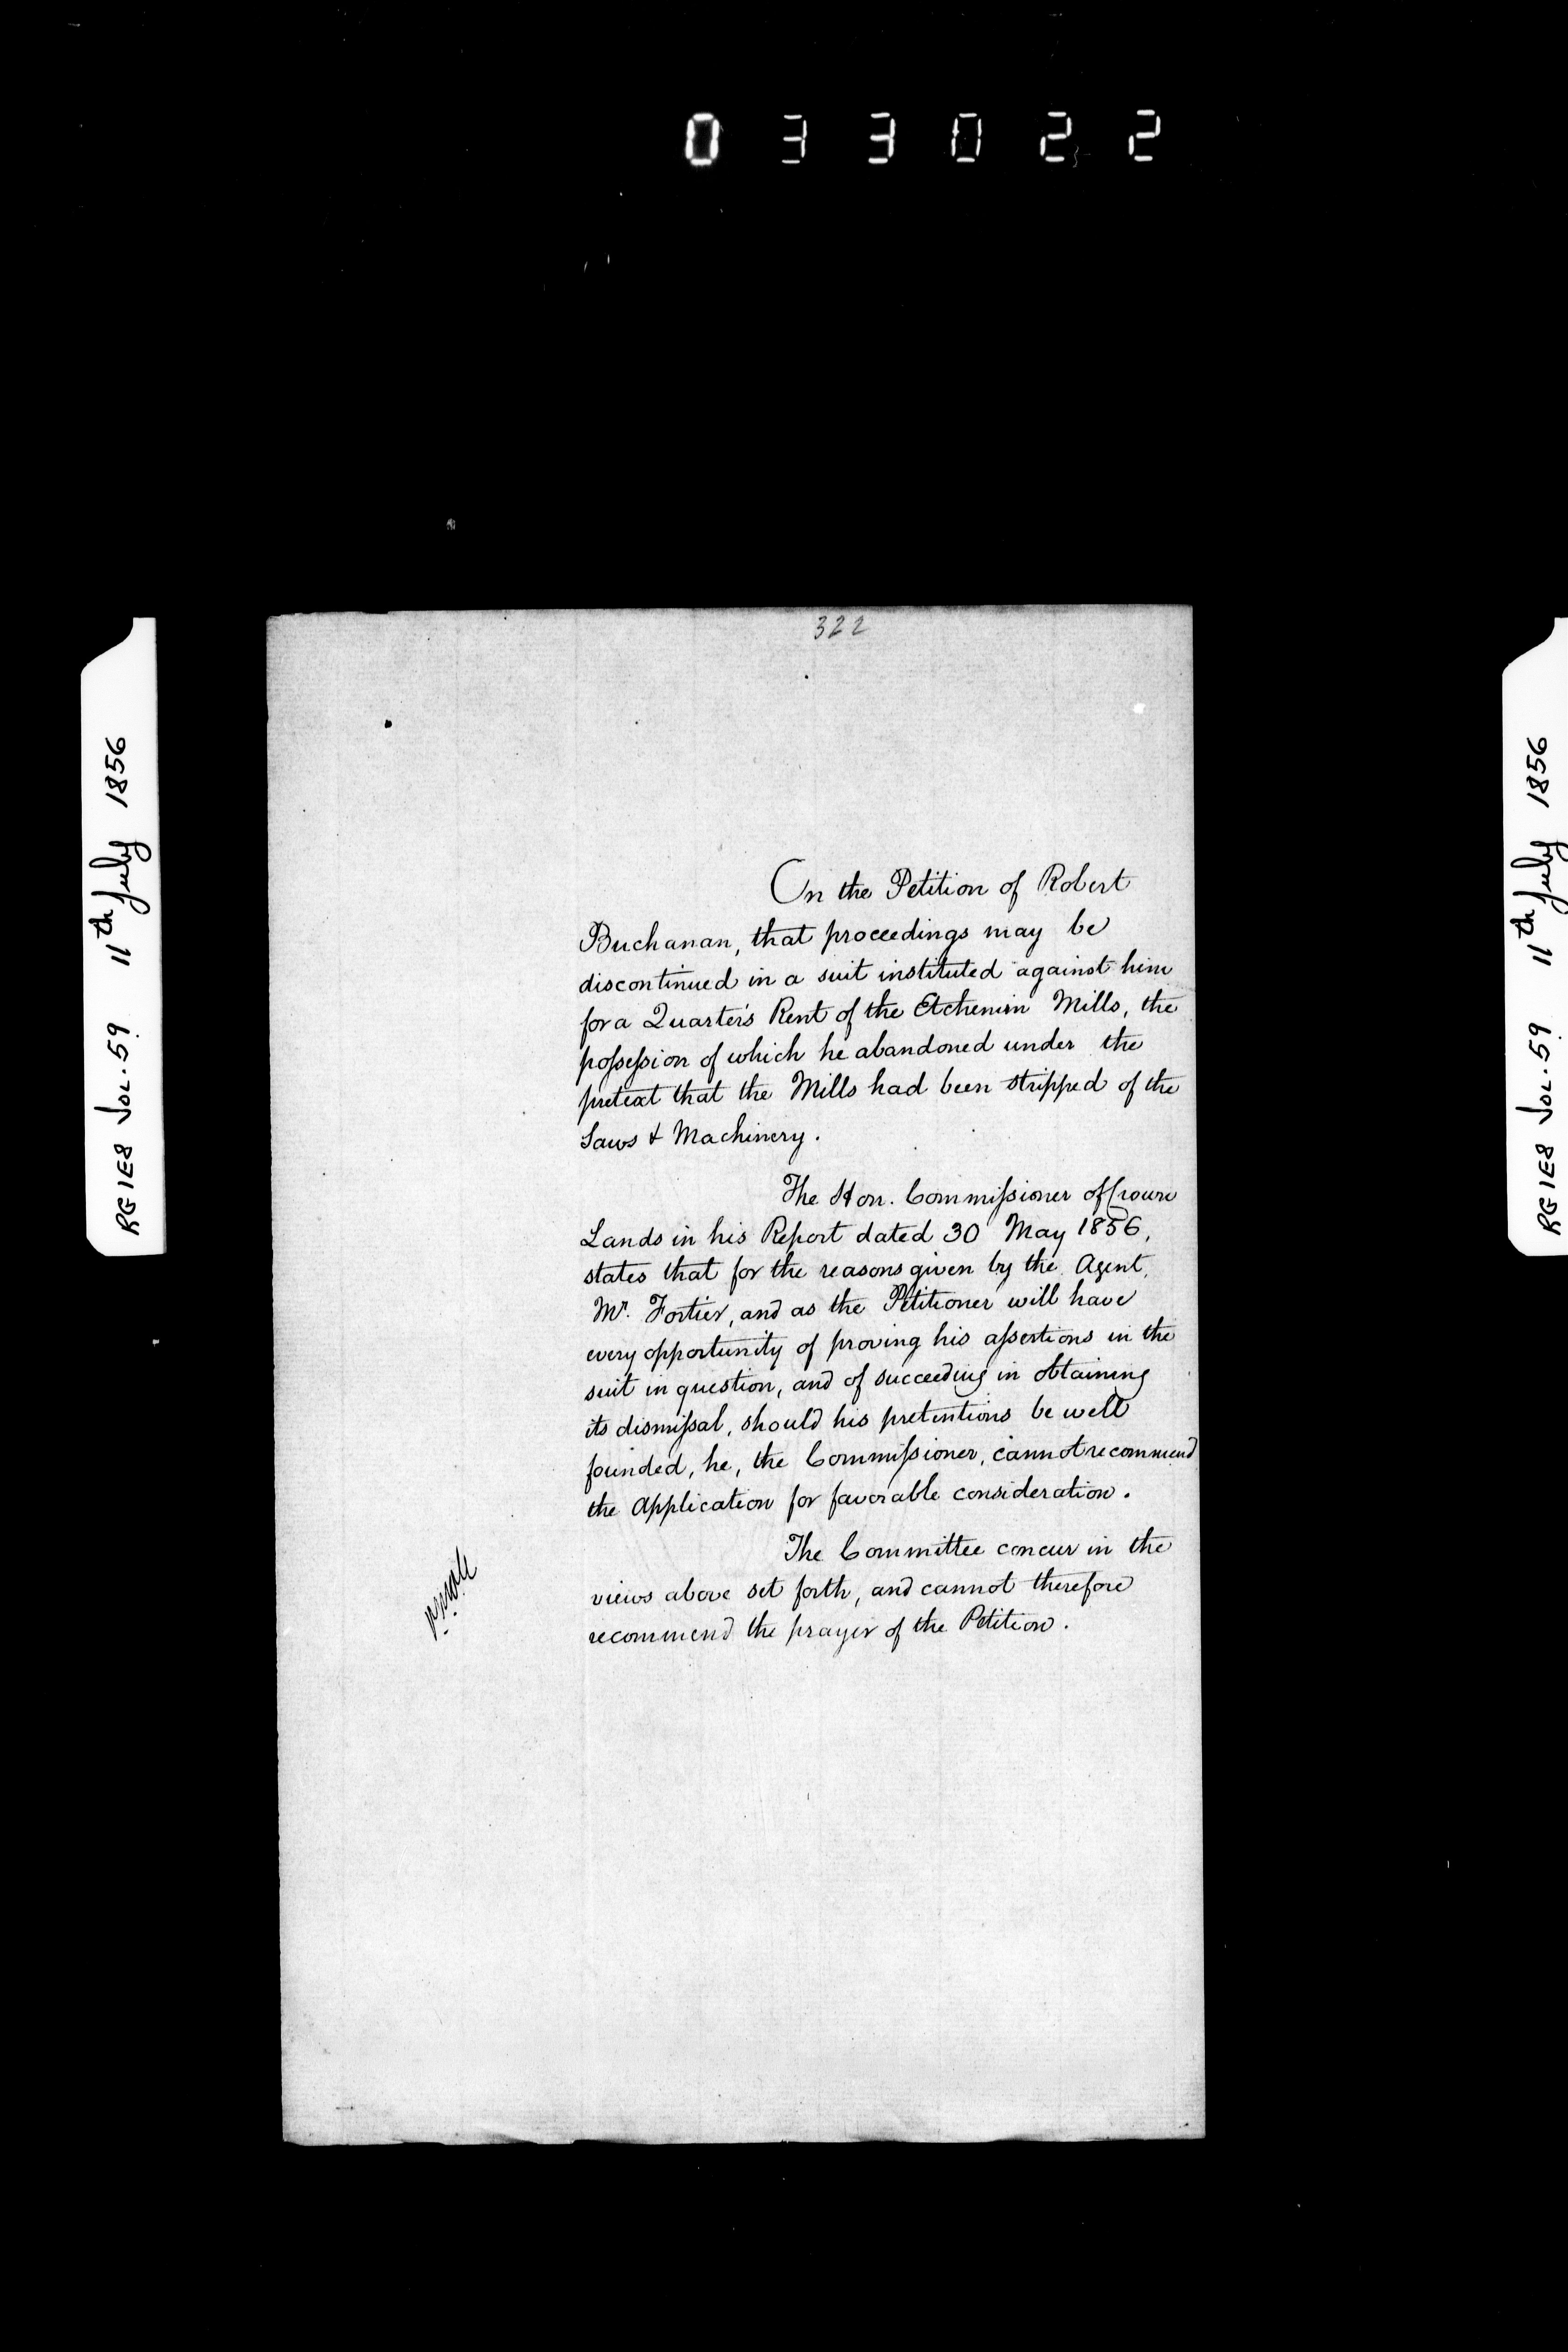 033022
322
RG1E8 Vol. 59 11th July 1856
On the Petition of Robert
Buchanan, that proceedings may be
discontinued in a suit instituted against him
for a Quarter's Rent of the Etchemin Mills, the
possession of which he abandoned under the
pretext that the Mills had been stripped of the
Saws & Machinery.
The Hon. Commissioner of Crown
Lands in his Report dated 30 May 1856,
states that for the reasons given by the Agent,
Mr. Fortier, and as the Petitioner will have
every opportunity of proving his assertions in the
suit in question, and of succeeding in obtaining
its dismissal, should his pretentions be well
founded, he, the Commissioner, cannot recommend
the Application for favorable consideration.
The Committee concur in the
views above set forth, and cannot therefore
recommend the prayer of the Petition.
RG1E8 Vol. 59 11th July 1856